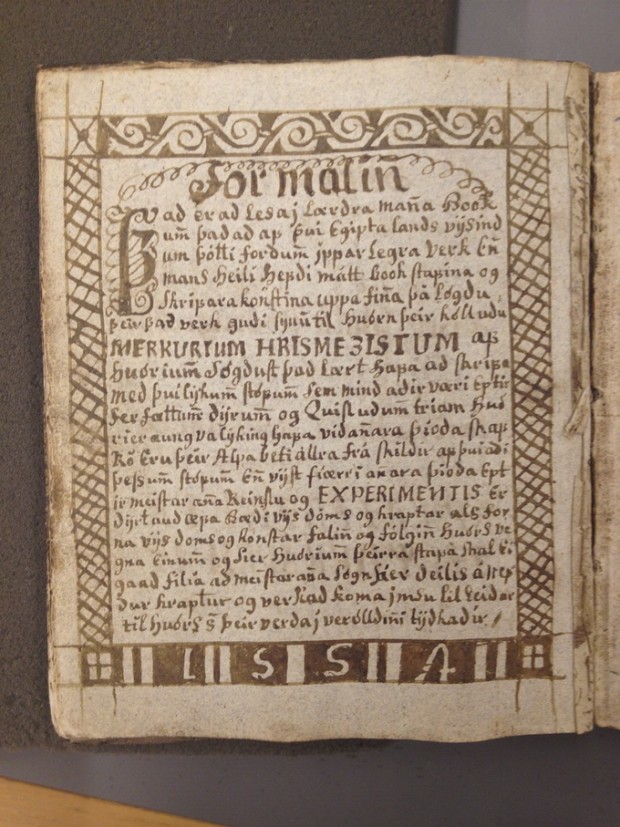 Formálin
Þad er ad Lesa j Lærdra mana Book
um þad ad ap þui Egipta lands vijsind
um þótti fordum jppar legra verk En
mans Heili Hepdi mátt Book stapina og
Skripara konstina uppa fina þá Løgdu
þeir þad verk gudi sijnu til Huorn þeir kölludu
MERKURIUM HRISMEZISTUM ap
Huorium Søgdust þad Lært Hapa ad skripa
med þuilijkum stöpum Sem mind adir væri Eptir
Fer fættum dijrum og Quist udum triam Huo
rier aungva lijking hapa vid anara þioda skap
Eru þeir Alpa beti allra frá skildir ap þui adi
þessum stöpum En vijst fiærri anara þioda Ept
ir meistar ana Reinslu og EXPERIMENTIS Er
vijs doms og kraptar als for
na vijs doms og konstar falin og fólgin Huørs ve
gna Einum og Sier Huorium þeirra stapa skal Ei
gaad filia ad meistarana Søgn Hier deilis á
dur kraptur og verkad koma j
til Huørs þeir verda j verølldini tijdkadir
LSSA